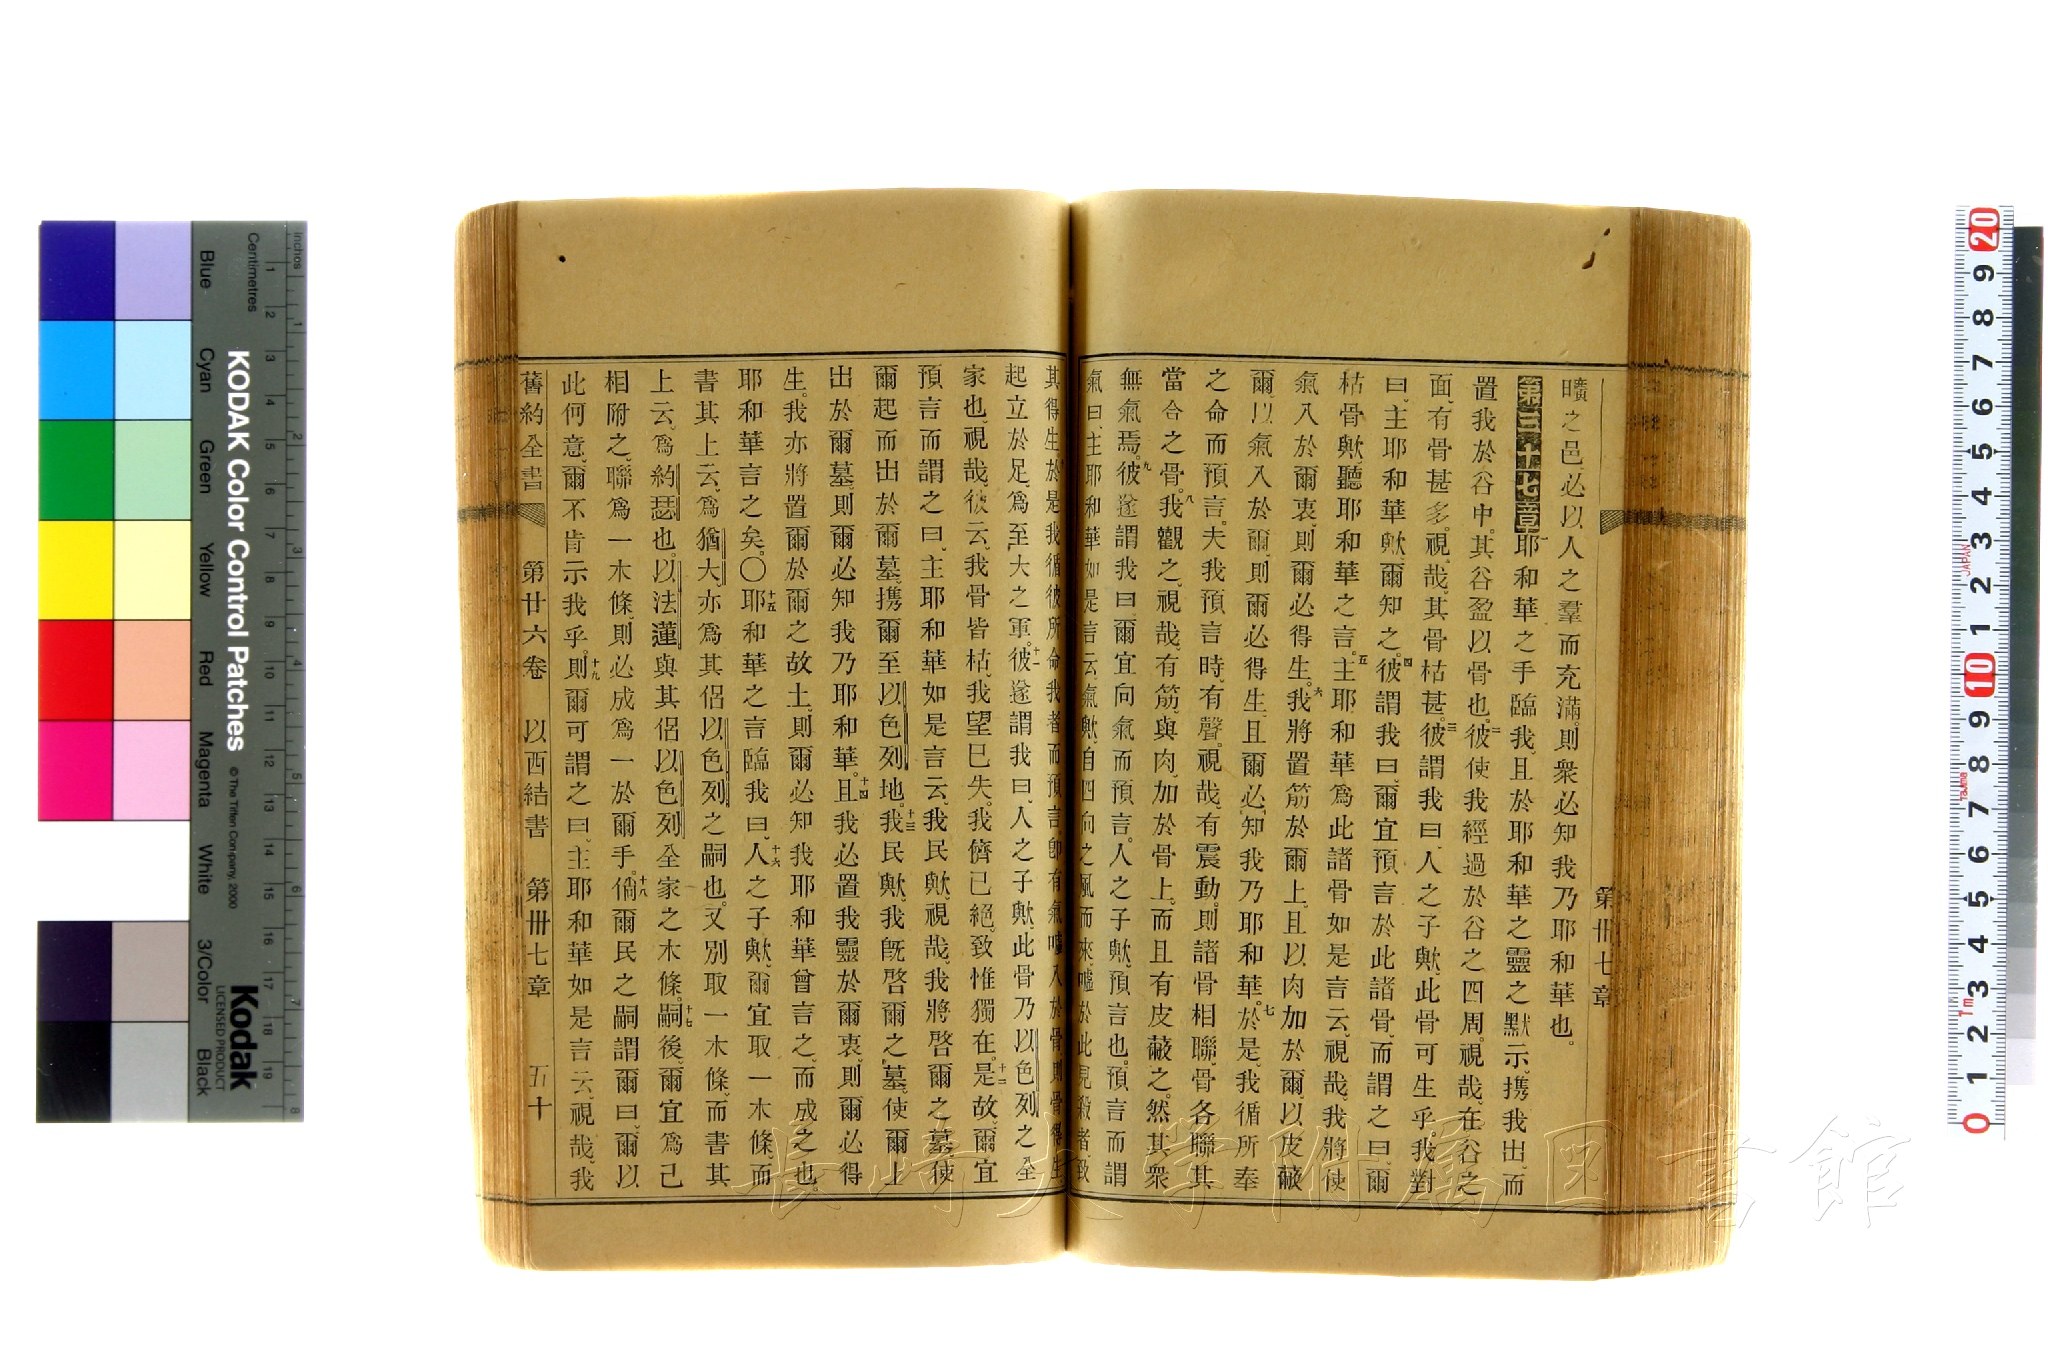 第卅七章
曠之邑必以人之羣而充滿則衆必知我乃耶和華也。
第三十七章一耶和華之手臨我、且於耶和華之靈之默示、携我出、而
置我於谷中。其谷盈以骨也。二彼使我經過於谷之四周。視哉、在谷之
面、有骨甚多。視哉、其骨枯甚。三彼謂我曰、人之子歟、此骨可生乎。我對
曰、主耶和華歟、爾知之。四彼謂我曰、爾宜預言於此諸骨、而謂之曰、爾
枯骨歟、聽耶和華之言。五主耶和華爲此諸骨如是言云、視哉、我將使
氣入於爾衷、則爾必得生。六我將置筋於爾上、且以肉加於爾、以皮蔽
爾、以氣入於爾、則爾必得生、且爾必知我乃耶和華。七於是、我循所奉
之命而預言。夫我預言時、有聲。視哉、有震動。則諸骨相聯、骨各聯其
當合之骨。八我觀之、視哉、有筋、與肉、加於骨上。而且有皮蔽之。然其衆
無氣焉。九彼遂謂我曰、爾宜向氣而預言。人之子歟、預言也。預言而謂
氣曰、主耶和華如是言云、氣歟、自四向之風而來、噓於此見殺者、致
其得生。於是我循彼所命我者而預言、卽有氣噓入於骨、則骨得生、
起立於足、爲至大之軍。十一彼遂謂我曰、人之子歟、此骨乃以色列之全
家也。視哉、彼云、我骨皆枯、我望已失、我儕已絕、致惟獨在。十二是故、爾宜
預言而謂之曰、主耶和華如是言云、我民歟、視哉、我將啓爾之墓、使
爾起而出於爾墓、携爾至以色列地。十三我民歟、我旣啓爾之墓、使爾上
出於爾墓、則爾必知我乃耶和華。十四且我必置我靈於爾衷、則爾必得
生。我亦將置爾於爾之故土、則爾必知我耶和華曾言之、而成之也。
耶和華言之矣。〇十五耶和華之言臨我曰、十六人之子歟、爾宜取一木條、而
書其上云、爲猶大、亦爲其侶以色列之嗣也。又別取一木條、而書其
上云、爲約瑟也。以法蓮與其侶以色列全家之木條。十七嗣後、爾宜爲己
相附之、聯爲一木條、則必成爲一於爾手。十八倘爾民之嗣謂爾曰、爾以
此何意、爾不肯示我乎。十九則爾可謂之曰、主耶和華如是言云、視哉、我
舊約全書　第廿六卷　以西結書　第卅七章　五十
KODAK Color Control Patches
© The Tiffen Company, 2000
Kodak
LICENSED PRODUCT
Inches
Centimetres
Blue
Cyan
Green
Yellow
Red
Magenta
White
3/Color
Black
長崎大学附属図書館